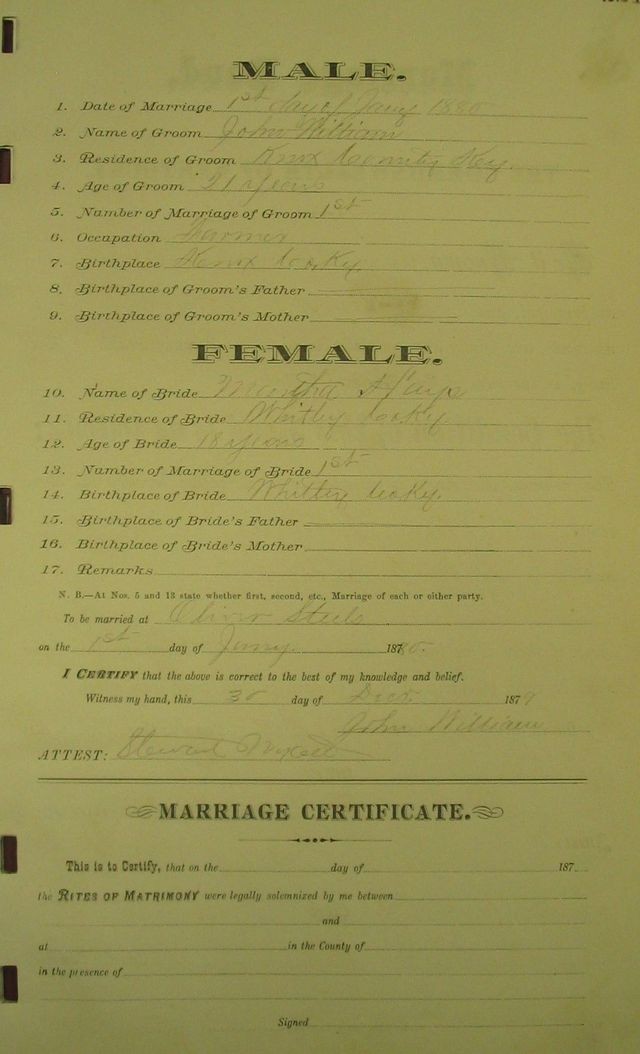 MALE.
1. Date of Marriage 1st day of Jany 1880
2. Name of Groom John William
3. Residence of Groom Knox County Key.
4. Age of Groom 21 years
5. Number of Marriage of Groom 1st
6. Occupation Farmer
7. Birthplace Knox Co Ky
8. Birthplace of Groom's Father
9. Birthplace of Groom's Mother
FEMALE.
10. Name of Bride Martha
11. Residence of Bride Whitley Co Ky
12. Age of Bride 18 years
13. Number of Marriage of Bride 1st
14. Birthplace of Bride Whitley Co Ky.
15. Birthplace of Bride's Father
16. Birthplace of Bride's Mother
17. Remarks
N. B.—At Nos. 5 and 13 state whether first, second, etc., Marriage of each or either party.
To be married at Oliver Steels
on the 1st day of Jany 1880.
I CERTIFY that the above is correct to the best of my knowledge and belief.
Witness my hand, this 30 day of Decr. 1879
John William
ATTEST:
MARRIAGE CERTIFICATE.
This is to Certify, that on the day of 187
the RITES OF MATRIMONY were legally solemnized by me between
and
at in the County of
in the presence of
Signed